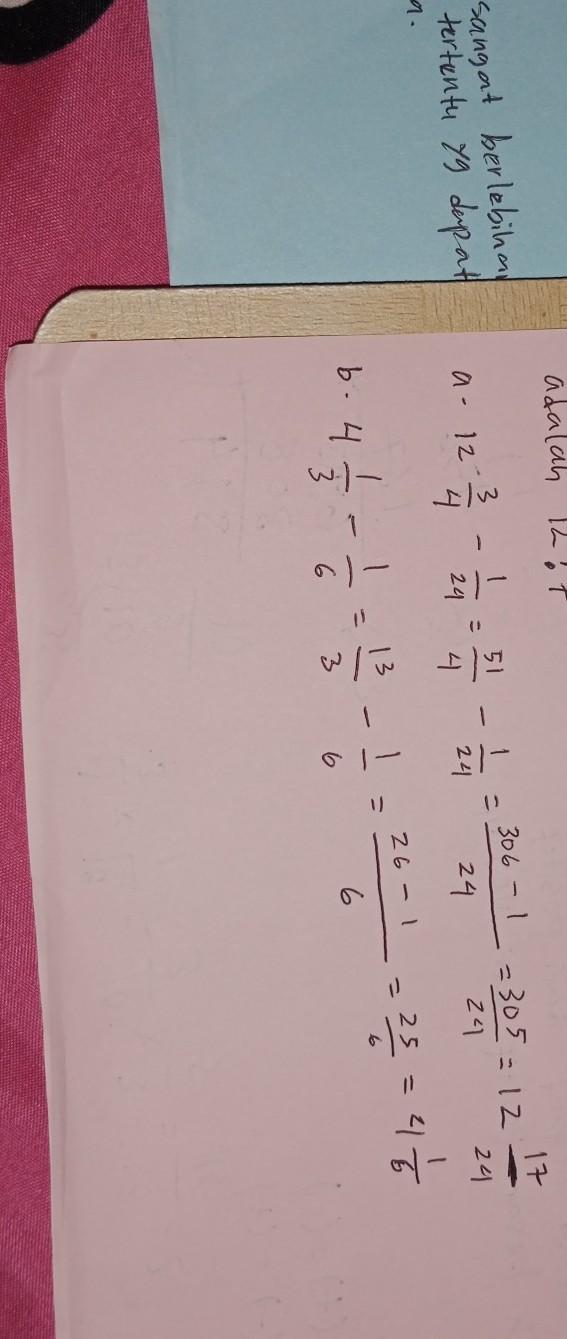 sangat berlebihan
tertentu yg dapat
a.
adalah 12:
a. 12 3/4 - 1/24 = 51/4 - 1/24 = 306 - 1/24 = 305/24 = 12 17/24
b. 4 1/3 - 1/6 = 13/3 - 1/6 = 26 - 1/6 = 25/6 = 4 1/6